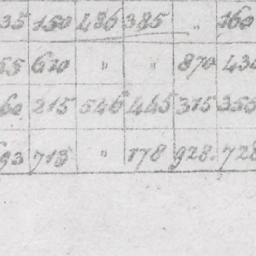 35 150 486 385 " 160
55 610 " " 870 430
60 215 546 445 315 355
93 713 " 178 928. 728